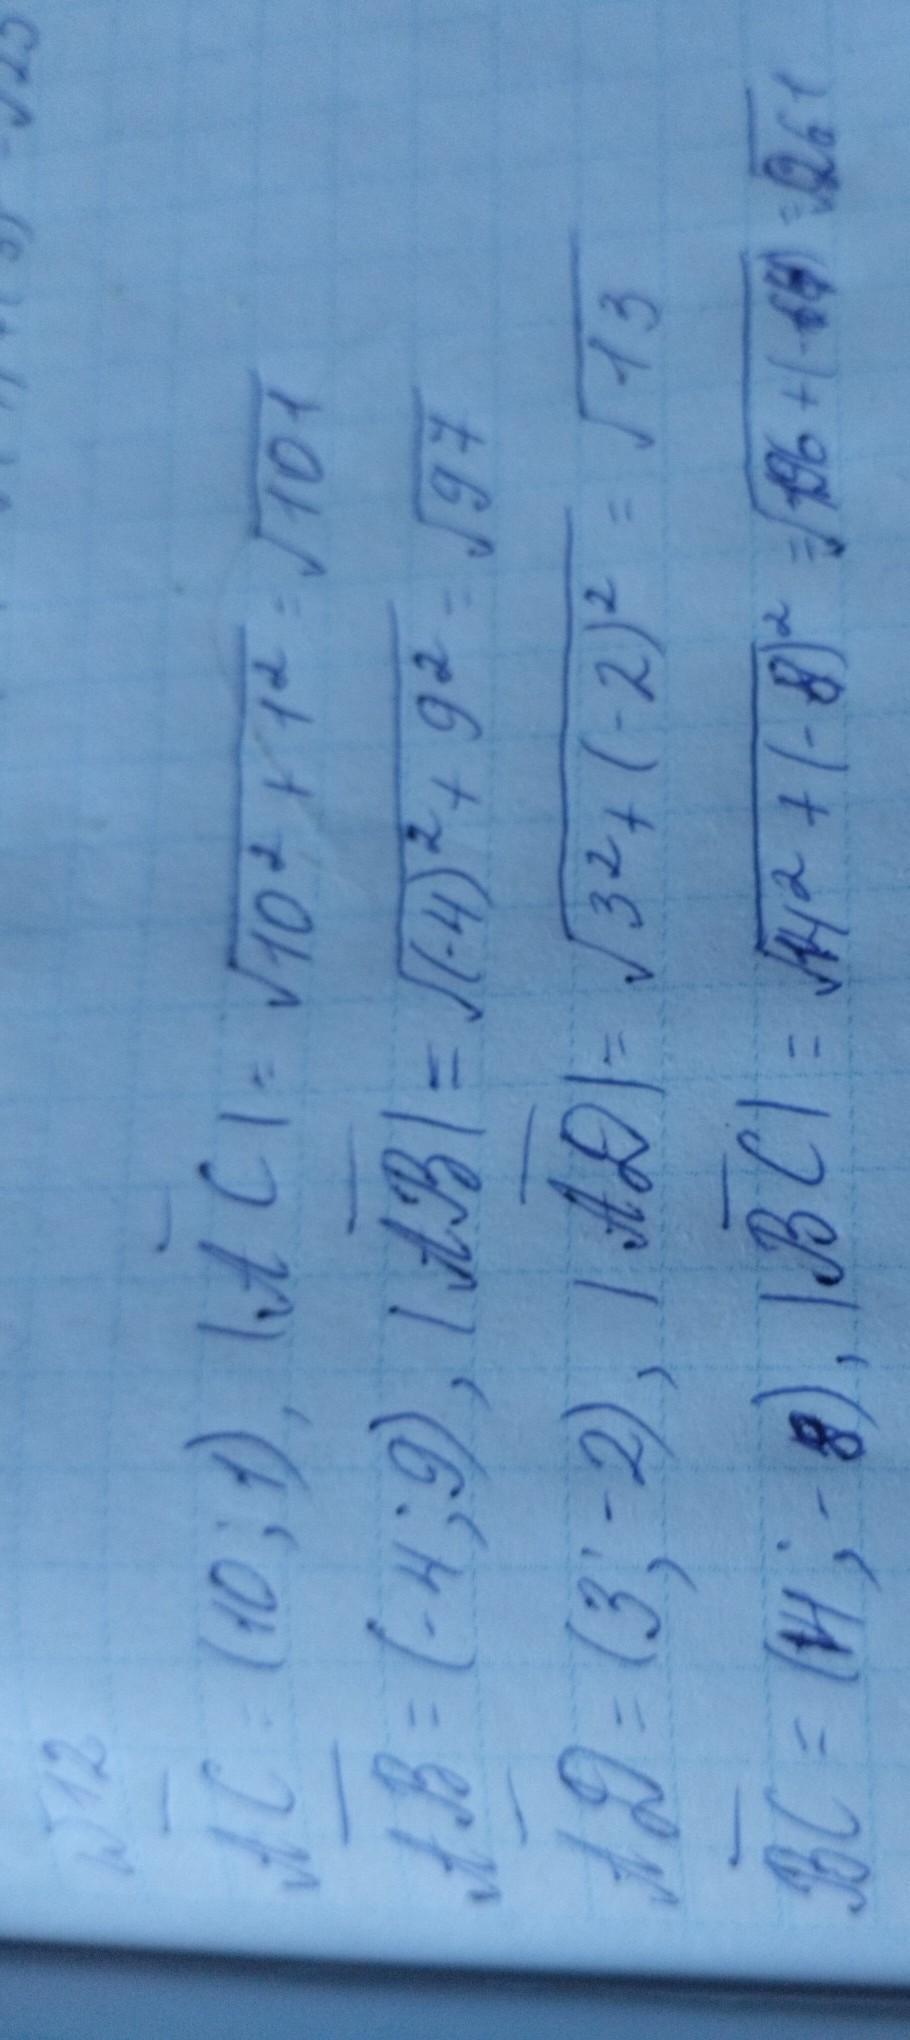 √25
№12
AC = (10; 1), |AC| = √10² + 1² = √101
AB = (-4; 9), |AB| = √(-4)² + 9² = √97
AD = (3; -2), |AD| = √3² + (-2)² = √13
BC = (14; -8), |BC| = √14² + (-8)² = √196 + (-64) = √261